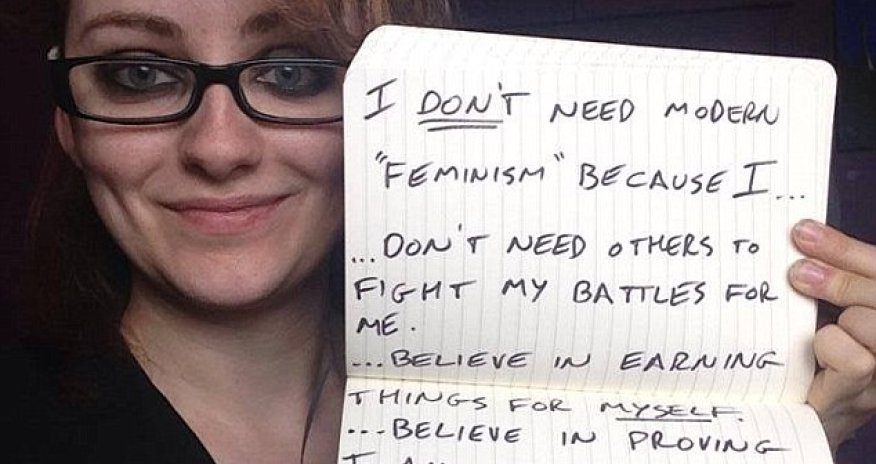 I DON'T NEED MODERN
"FEMINISM" BECAUSE I...
...DON'T NEED OTHERS TO
FIGHT MY BATTLES FOR
ME.
...BELIEVE IN EARNING
THINGS FOR MYSELF.
...BELIEVE IN PROVING
I